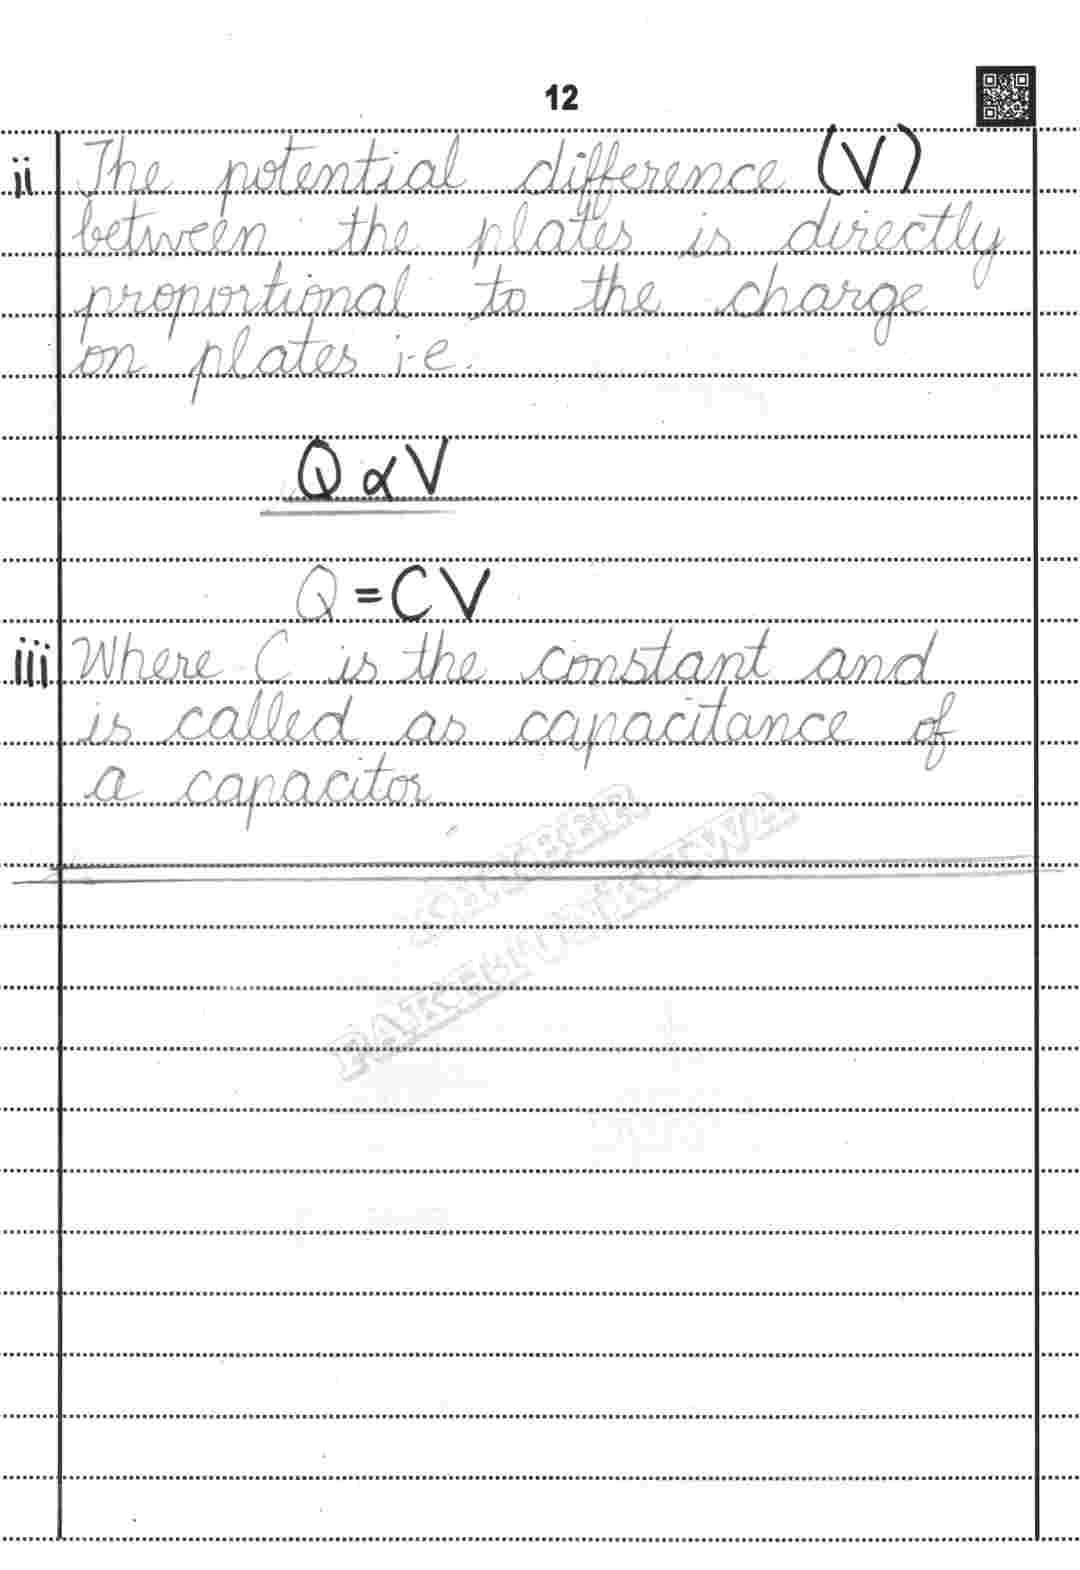 12
ii The potential difference (V)
between the plates is directly
proportional to the charge
on plates i-e.
Q ∝ V
Q = CV
iii Where C is the constant and
is called as capacitance of
a capacitor.
KHYBER
PAKHTUNKHWA